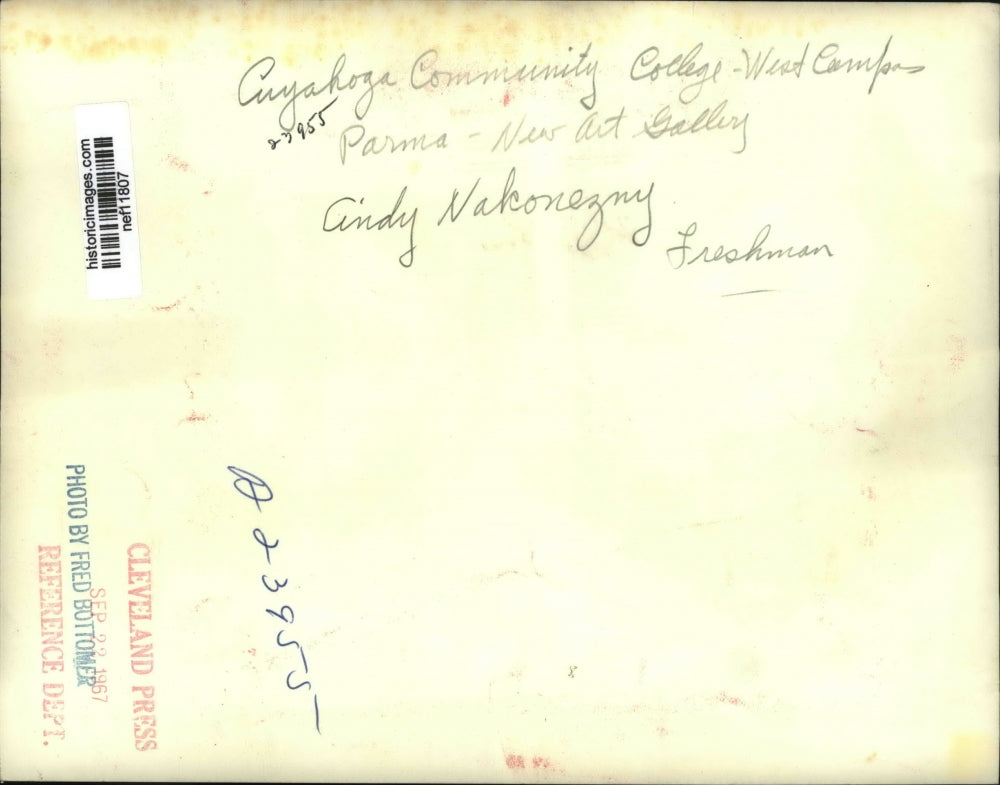 Cuyahoga Community College - West Campus
23955
Parma - New Art Gallery
Cindy Nakonezny
Freshman
historicimages.com
nef11807
A23955
PHOTO BY FRED BOTTOMER
CLEVELAND PRESS
SEP 22 1967
REFERENCE DEPT.